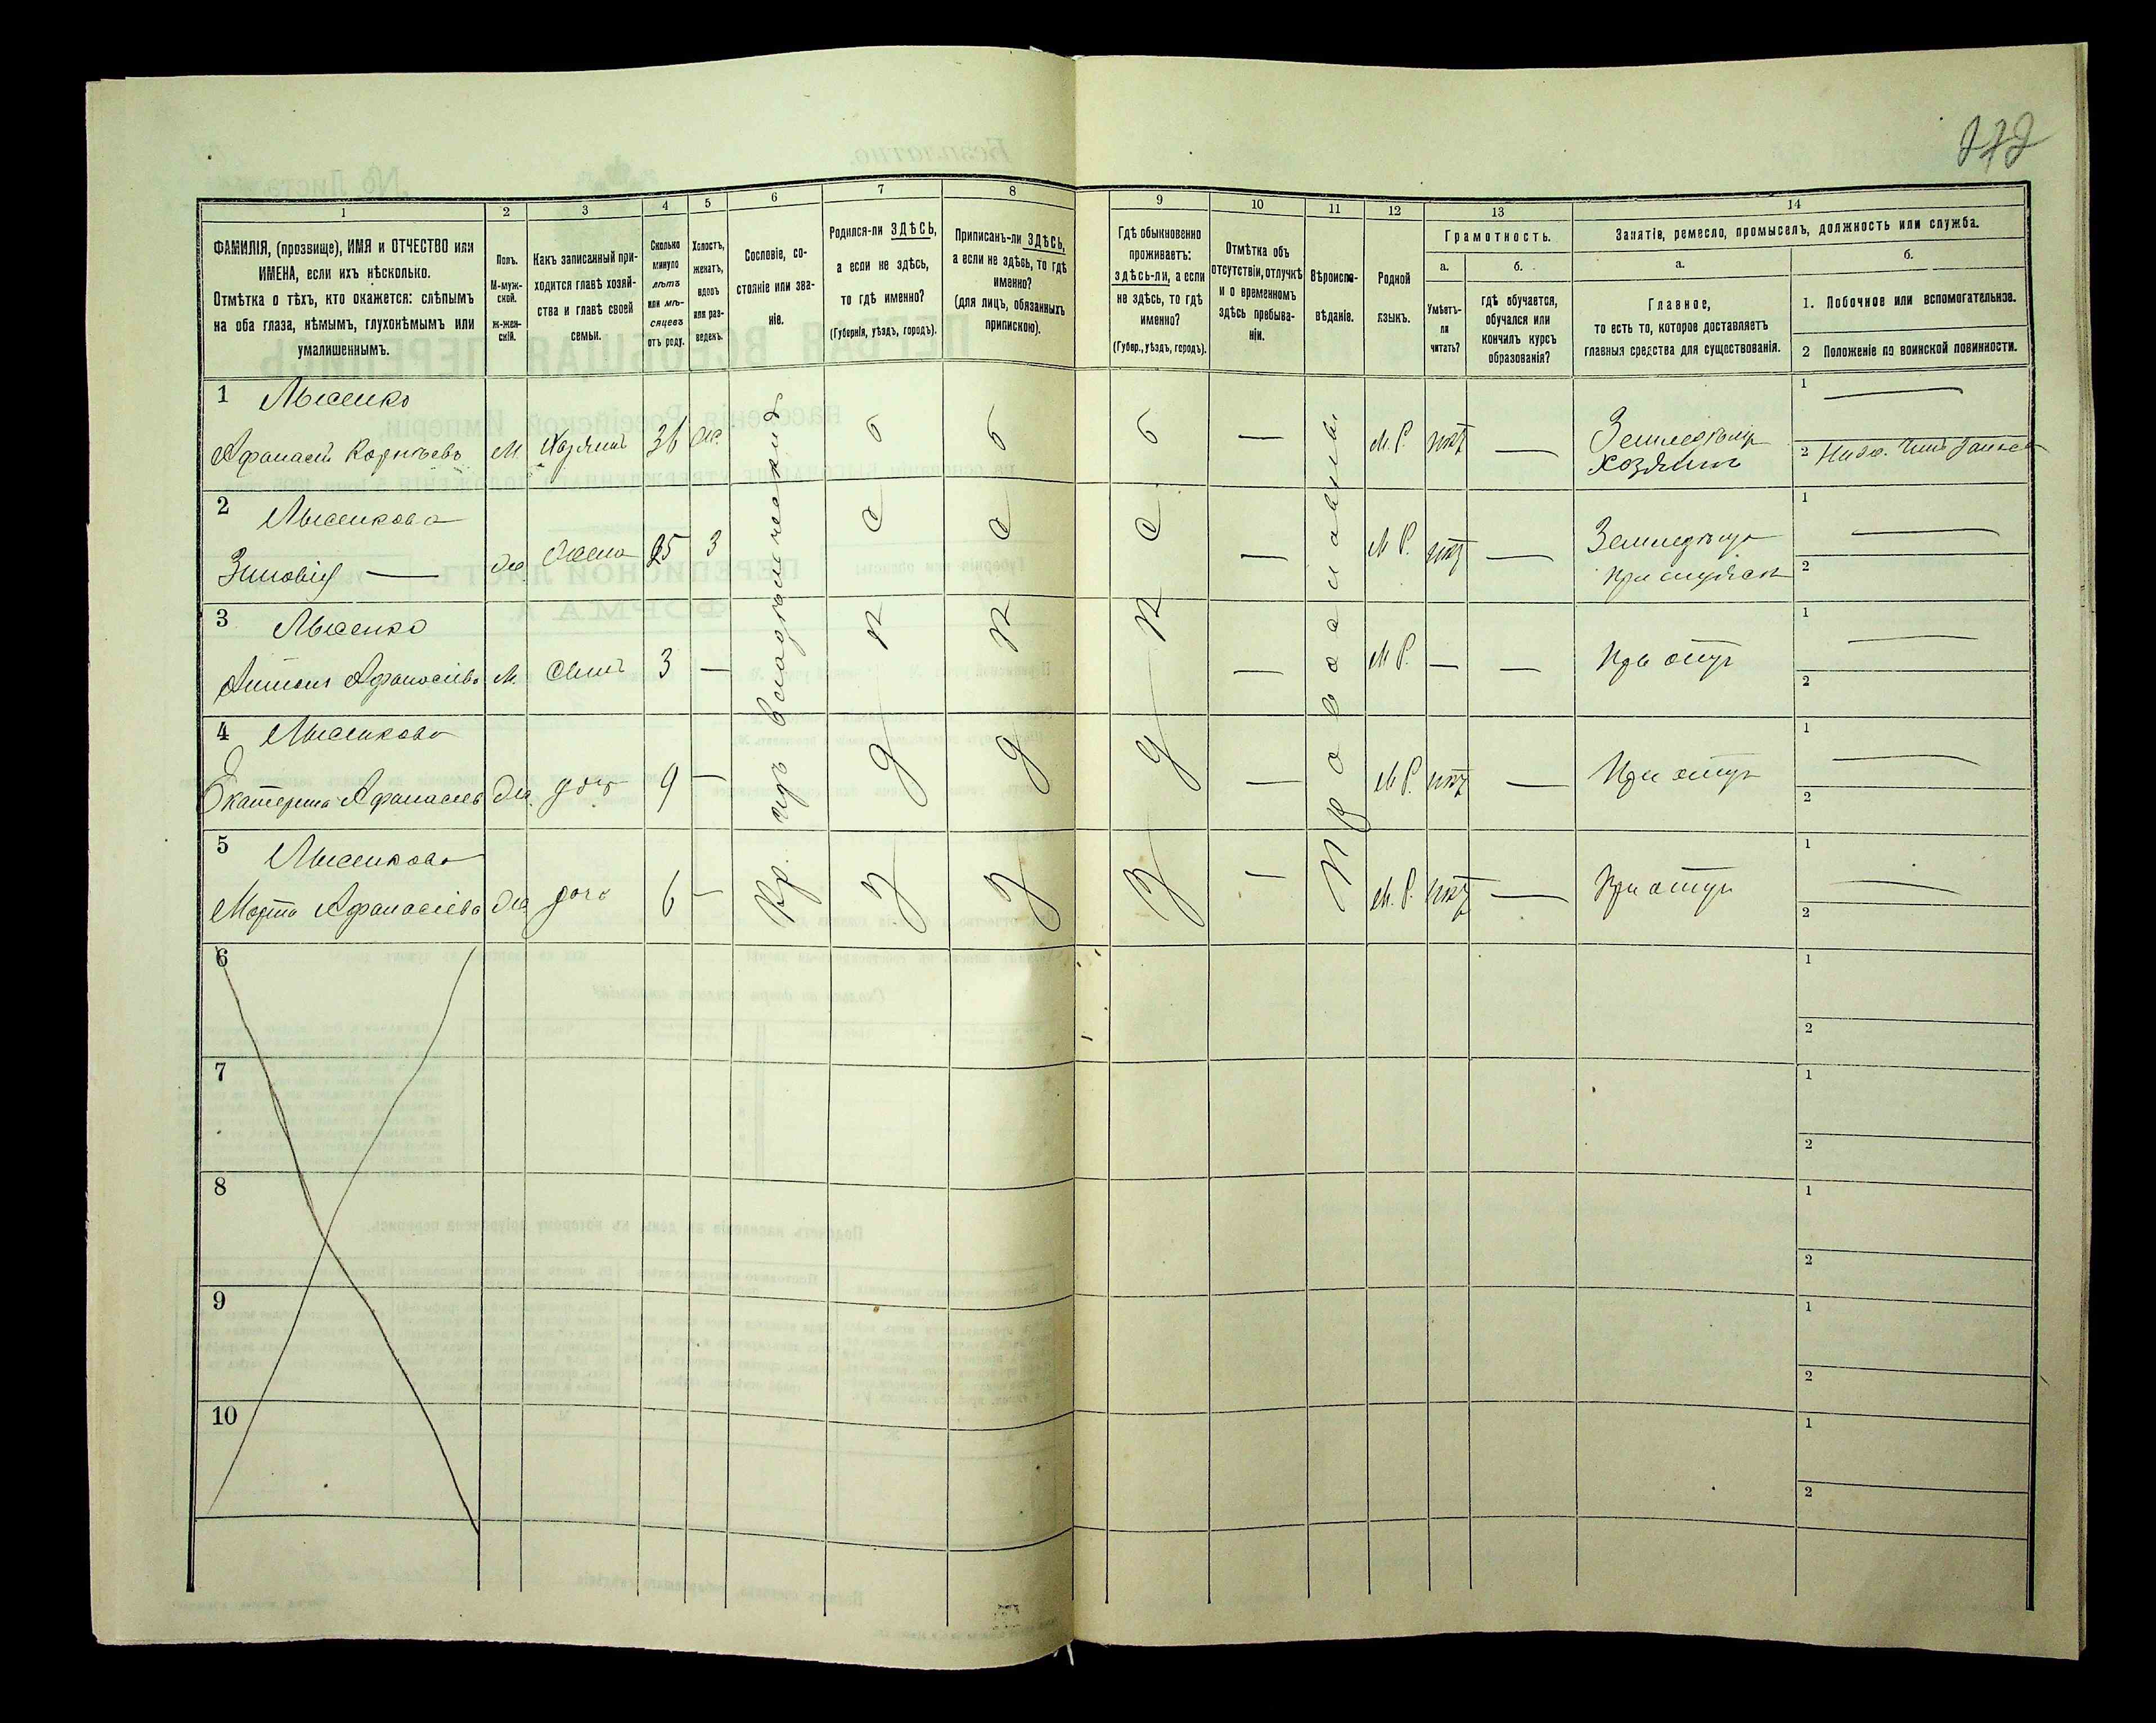 272
1
2
3
4
5
6
7
8
9
10
11
12
13
14
ФАМИЛІЯ, (прозвище), ИМЯ и ОТЧЕСТВО или
ИМЕНА, если ихъ нѣсколько.
Отмѣтка о тѣхъ, кто окажется: слѣпымъ
на оба глаза, нѣмымъ, глухонѣмымъ или
умалишеннымъ.
Полъ.
М-муж-
ской.
Ж-жен-
скій.
Какъ записанный при-
ходится главѣ хозяй-
ства и главѣ своей
семьи.
Сколько
минуло
лѣтъ
или мѣ-
сяцевъ
отъ роду.
Холостъ,
женатъ,
вдовъ
или раз-
веденъ.
Сословіе, со-
стояніе или зва-
ніе.
Родился-ли ЗДѢСЬ,
а если не здѣсь,
то гдѣ именно?
(Губернія, уѣздъ, городъ).
Приписанъ-ли ЗДѢСЬ,
а если не здѣсь, то гдѣ
именно?
(для лицъ, обязанныхъ
припискою).
Гдѣ обыкновенно
проживаетъ:
здѣсь-ли, а если
не здѣсь, то гдѣ
именно?
(Губер., уѣздъ, городъ).
Отмѣтка объ
отсутствіи, отлучкѣ
и о временномъ
здѣсь пребыва-
ніи.
Вѣроиспо-
вѣданіе.
Родной
языкъ.
Грамотность.
а.
б.
Умѣетъ-
ли
читать?
гдѣ обучается,
обучался или
кончилъ курсъ
образованія?
Занятіе, ремесло, промыселъ, должность или служба.
а.
б.
Главное,
то есть то, которое доставляетъ
главныя средства для существованія.
1. Побочное или вспомогательное.
2 Положеніе по воинской повинности.
1 Лысенко
Афанасій Корнѣевъ М Хозяинъ 36 Ж. М. Р. нѣтъ Земледѣлiе хозяинъ
1
2 Нижн. Чинъ
2 Лысенкова
Зиновія — Ж. Жена 35 З М Р. нѣтъ Земледѣліе при мужѣ
1
2
3 Лысенко
Антонъ Афанасіевъ М. Сынъ 3 — М Р. При отцѣ
1
2
4 Лысенкова
Екатерина Афанасіев Ж. дочь 9 — М Р. нѣтъ При отцѣ
1
2
5 Лысенкова
Марта Афанасіева Ж. дочь 6 — М. Р. нѣтъ При отцѣ
1
2
Кр. изъ владѣльческихъ
здѣсь
здѣсь
здѣсь
Православный
6
1
2
7
1
2
8
1
2
9
1
2
10
1
2